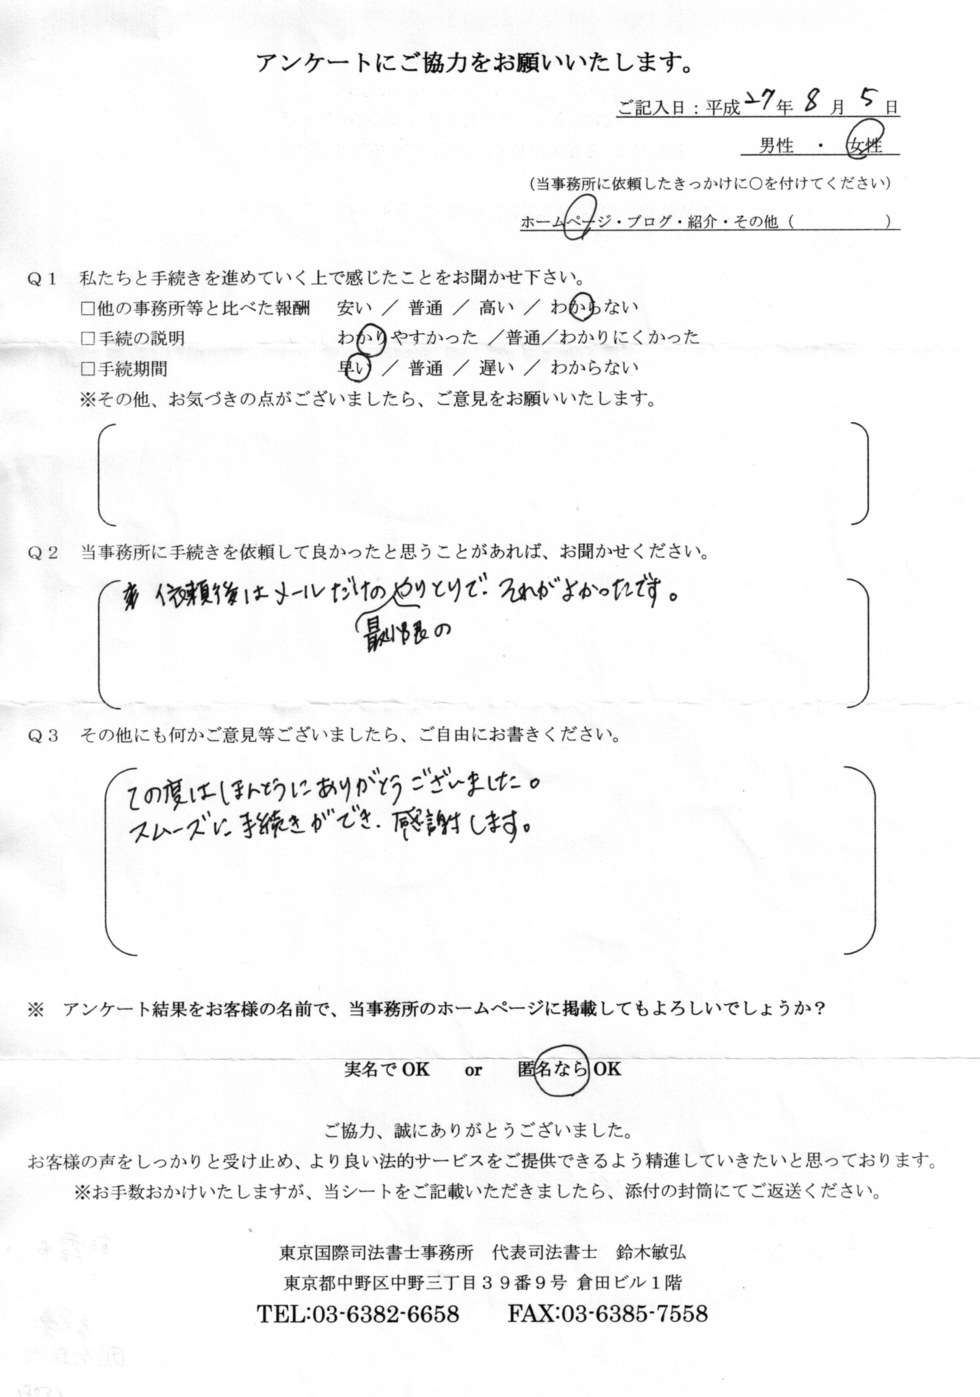 アンケートにご協力をお願いいたします。
ご記入日：平成27年8月5日
男性　・　女性
（当事務所に依頼したきっかけに〇を付けてください）
ホームページ・ブログ・紹介・その他（　　　　　）
Ｑ１　私たちと手続きを進めていく上で感じたことをお聞かせ下さい。
□他の事務所等と比べた報酬　安い ／ 普通 ／ 高い ／ わからない
□手続の説明　わかりやすかった ／普通／わかりにくかった
□手続期間　早い ／ 普通 ／ 遅い ／ わからない
※その他、お気づきの点がございましたら、ご意見をお願いいたします。
Ｑ２　当事務所に手続きを依頼して良かったと思うことがあれば、お聞かせください。
依頼後はメールだけのやりとりで、それがよかったです。
最小限の
Ｑ３　その他にも何かご意見等ございましたら、ご自由にお書きください。
この度はほんとうにありがとうございました。
スムーズに手続きができ、感謝します。
※　アンケート結果をお客様の名前で、当事務所のホームページに掲載してもよろしいでしょうか？
実名でOK　or　匿名ならOK
ご協力、誠にありがとうございました。
お客様の声をしっかりと受け止め、より良い法的サービスをご提供できるよう精進していきたいと思っております。
※お手数おかけいたしますが、当シートをご記載いただきましたら、添付の封筒にてご返送ください。
東京国際司法書士事務所　代表司法書士　鈴木敏弘
東京都中野区中野三丁目３９番９号 倉田ビル１階
TEL:03-6382-6658　FAX:03-6385-7558